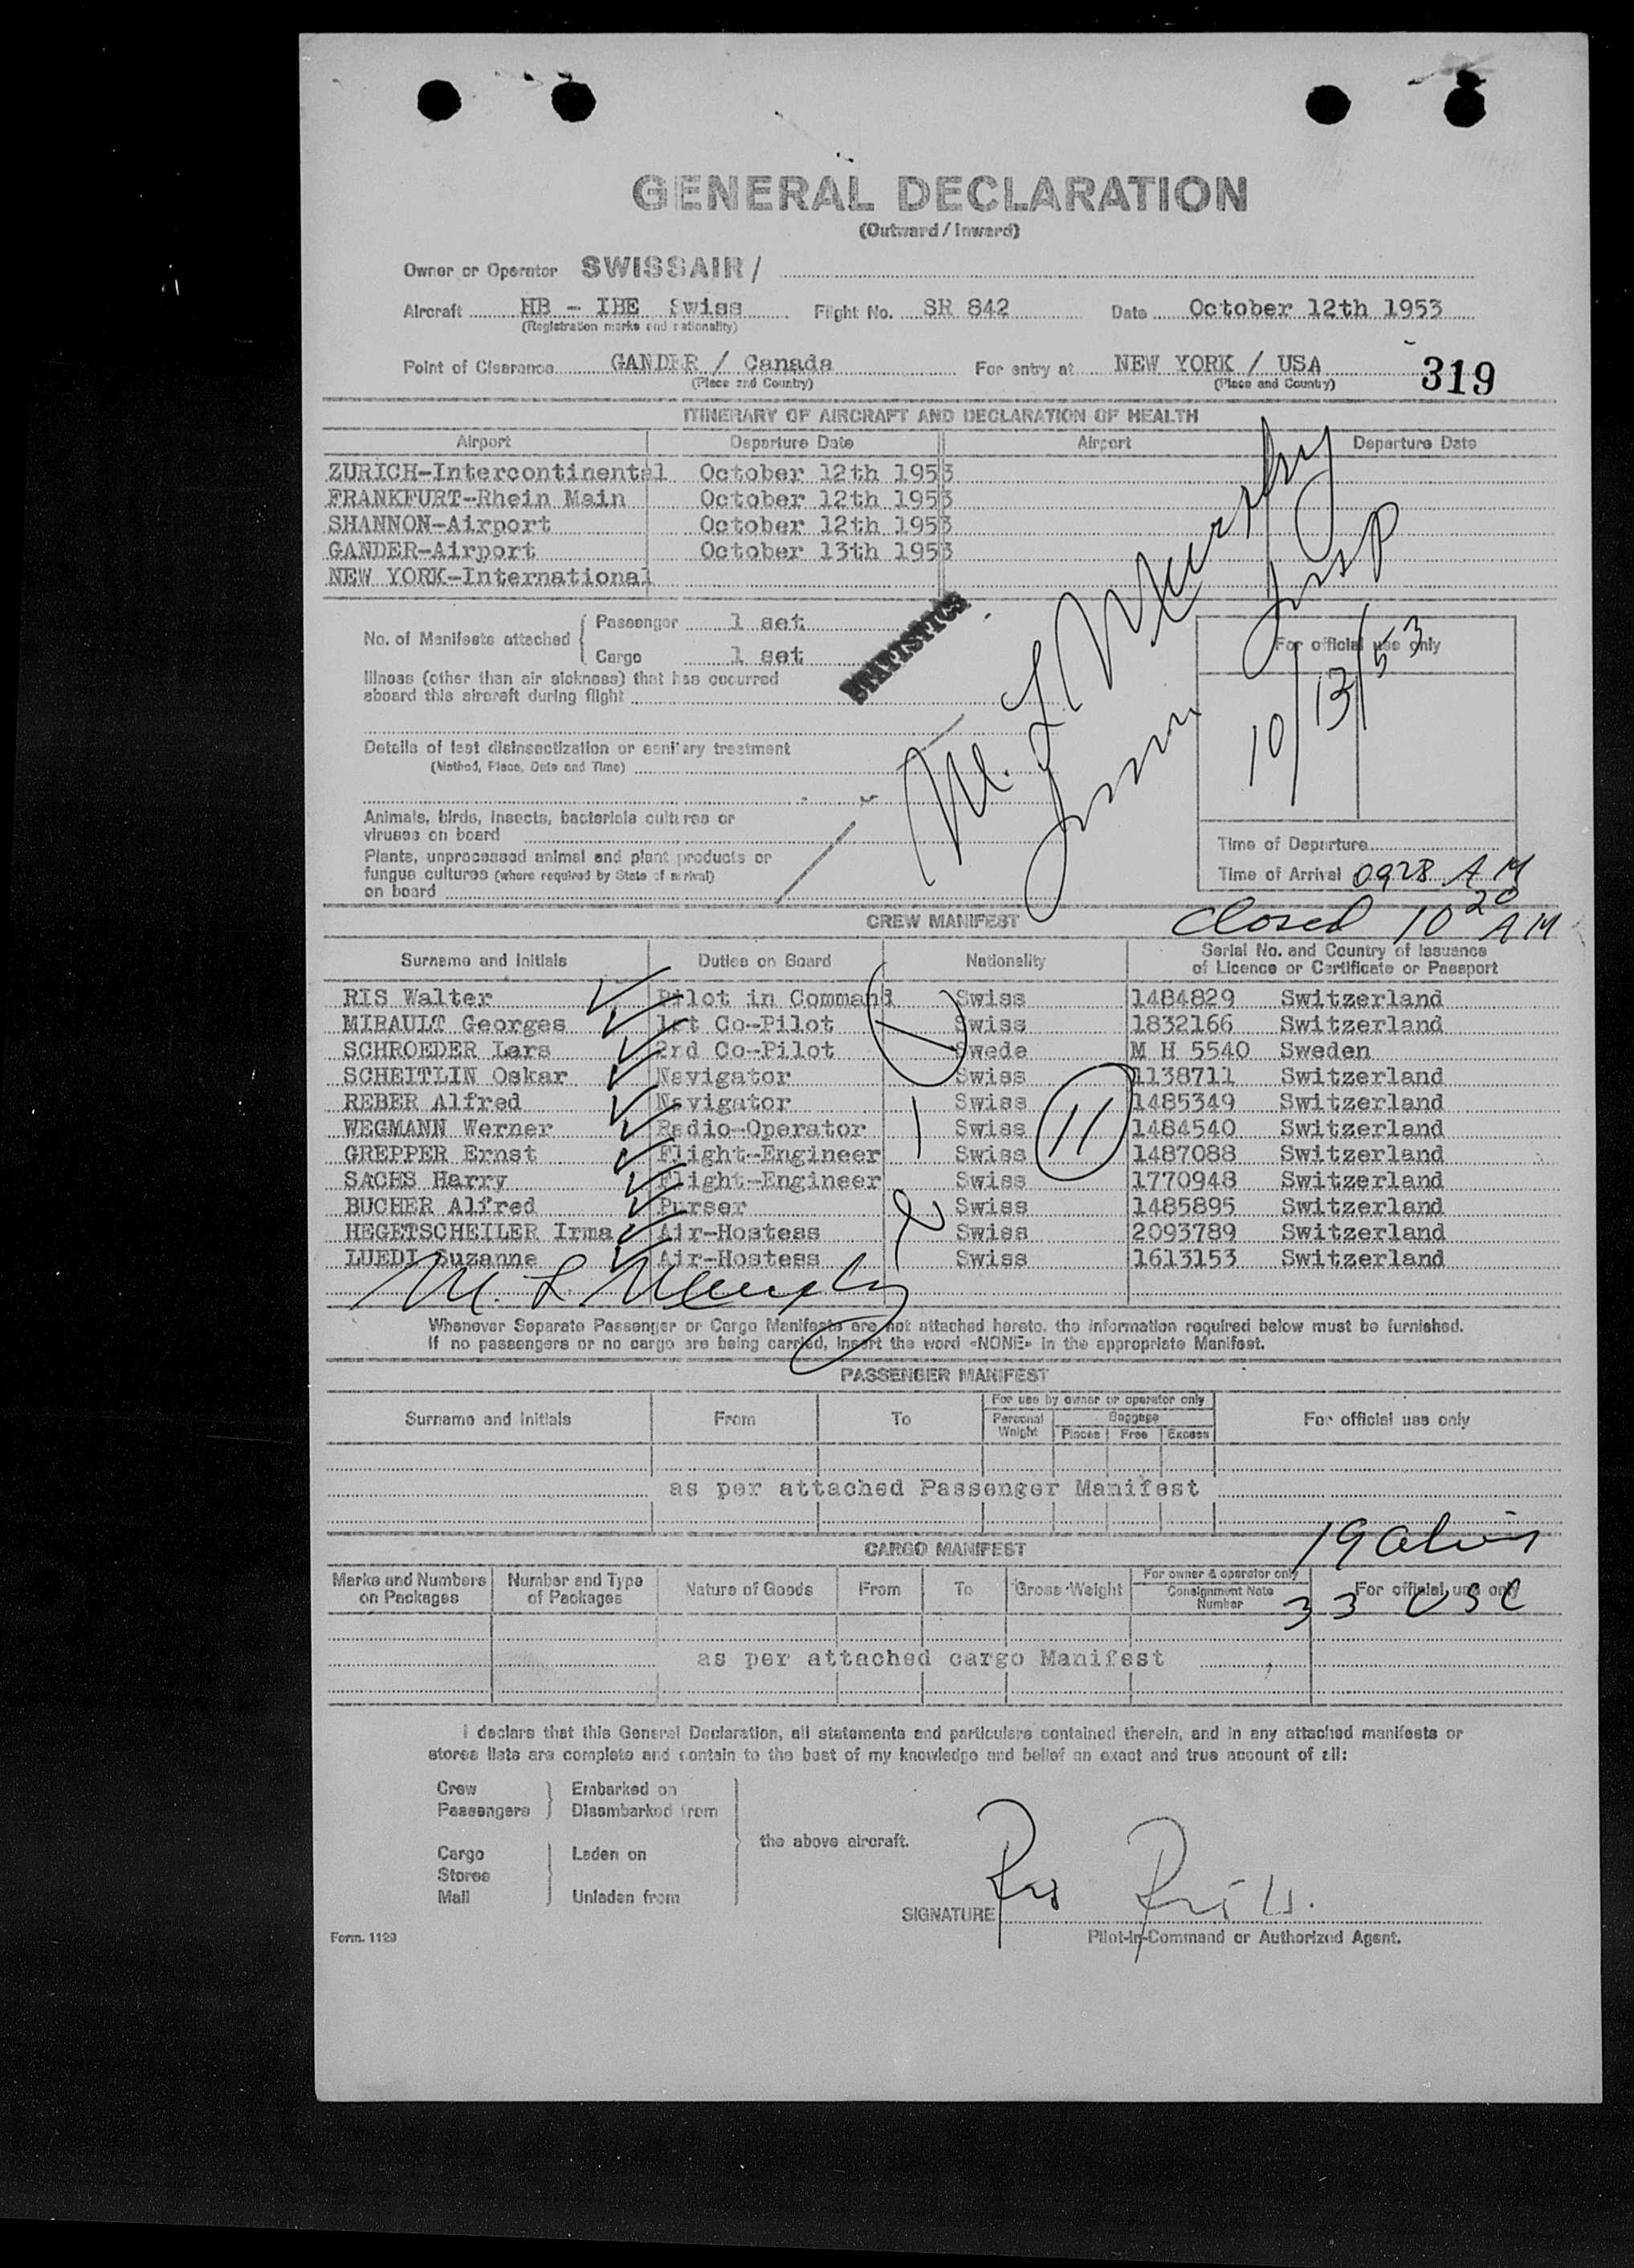 GENERAL DECLARATION
(Outward / Inward)
Owner or Operator SWISSAIR /
Aircraft HB - IBE Swiss Flight No. SR 842 Date October 12th 1953
(Registration marks and nationality)
Point of Clearance GANDER / Canada For entry at NEW YORK / USA 319
(Place and Country) (Place and Country)
ITINERARY OF AIRCRAFT AND DECLARATION OF HEALTH
Airport Departure Date Airport Departure Date
ZURICH-Intercontinental October 12th 1953
FRANKFURT-Rhein Main October 12th 1953
SHANNON-Airport October 12th 1953
GANDER-Airport October 13th 1953
NEW YORK-International
No. of Manifests attached
Passenger 1 set
Cargo 1 set
STATISTICS
M. L. Murphy
Imm Insp
10/13/53
For official use only
Illness (other than air sickness) that has occurred
aboard this aircraft during flight
Details of last disinsectization or sanitary treatment
(Method, Place, Date and Time)
Animals, birds, insects, bacteriala cultures or
viruses on board
Plants, unprocessed animal and plant products or
fungus cultures (where required by State of arrival)
on board
Time of Departure
Time of Arrival 0928 AM
Closed 10 20 AM
CREW MANIFEST
Surname and Initials Duties on Board Nationality Serial No. and Country of Issuance
of Licence or Certificate or Passport
RIS Walter Pilot in Command Swiss 1484829 Switzerland
MIRAULT Georges 1st Co-Pilot Swiss 1832166 Switzerland
SCHROEDER Lars 2rd Co-Pilot Swede M H 5540 Sweden
SCHEITLIN Oskar Navigator Swiss 1138711 Switzerland
REBER Alfred Navigator Swiss 1485349 Switzerland
WEGMANN Werner Radio-Operator Swiss 1484540 Switzerland
GREPPER Ernst Flight-Engineer Swiss 1487088 Switzerland
SACHS Harry Flight-Engineer Swiss 1770948 Switzerland
BUCHER Alfred Purser Swiss 1485895 Switzerland
HEGETSCHEILER Irma Air-Hostess Swiss 2093789 Switzerland
LUEDI Suzanne Air-Hostess Swiss 1613153 Switzerland
11
M. L. Murphy
Whenever Separate Passenger or Cargo Manifests are not attached hereto, the information required below must be furnished.
If no passengers or no cargo are being carried, insert the word «NONE» in the appropriate Manifest.
PASSENGER MANIFEST
Surname and Initials From To For use by owner or operator only For official use only
Personal Weight Baggage
Pieces Free Excess
as per attached Passenger Manifest
19 aliens
CARGO MANIFEST
Marks and Numbers on Packages Number and Type of Packages Nature of Goods From To Gross Weight For owner & operator only For official use only
Consignment Note Number
33 USC
as per attached cargo Manifest
I declare that this General Declaration, all statements and particulars contained therein, and in any attached manifests or
stores lists are complete and contain to the best of my knowledge and belief an exact and true account of all:
Crew Embarked on
Passengers Disembarked from
the above aircraft.
Cargo Laden on
Stores
Mail Unladen from
SIGNATURE Ris
Pilot-in-Command or Authorized Agent.
Form. 1129